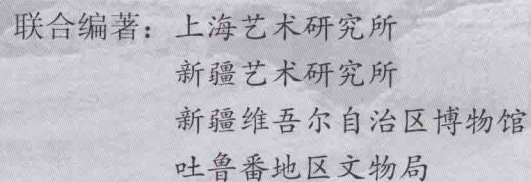 联合编著：上海艺术研究所
新疆艺术研究所
新疆维吾尔自治区博物馆
吐鲁番地区文物局